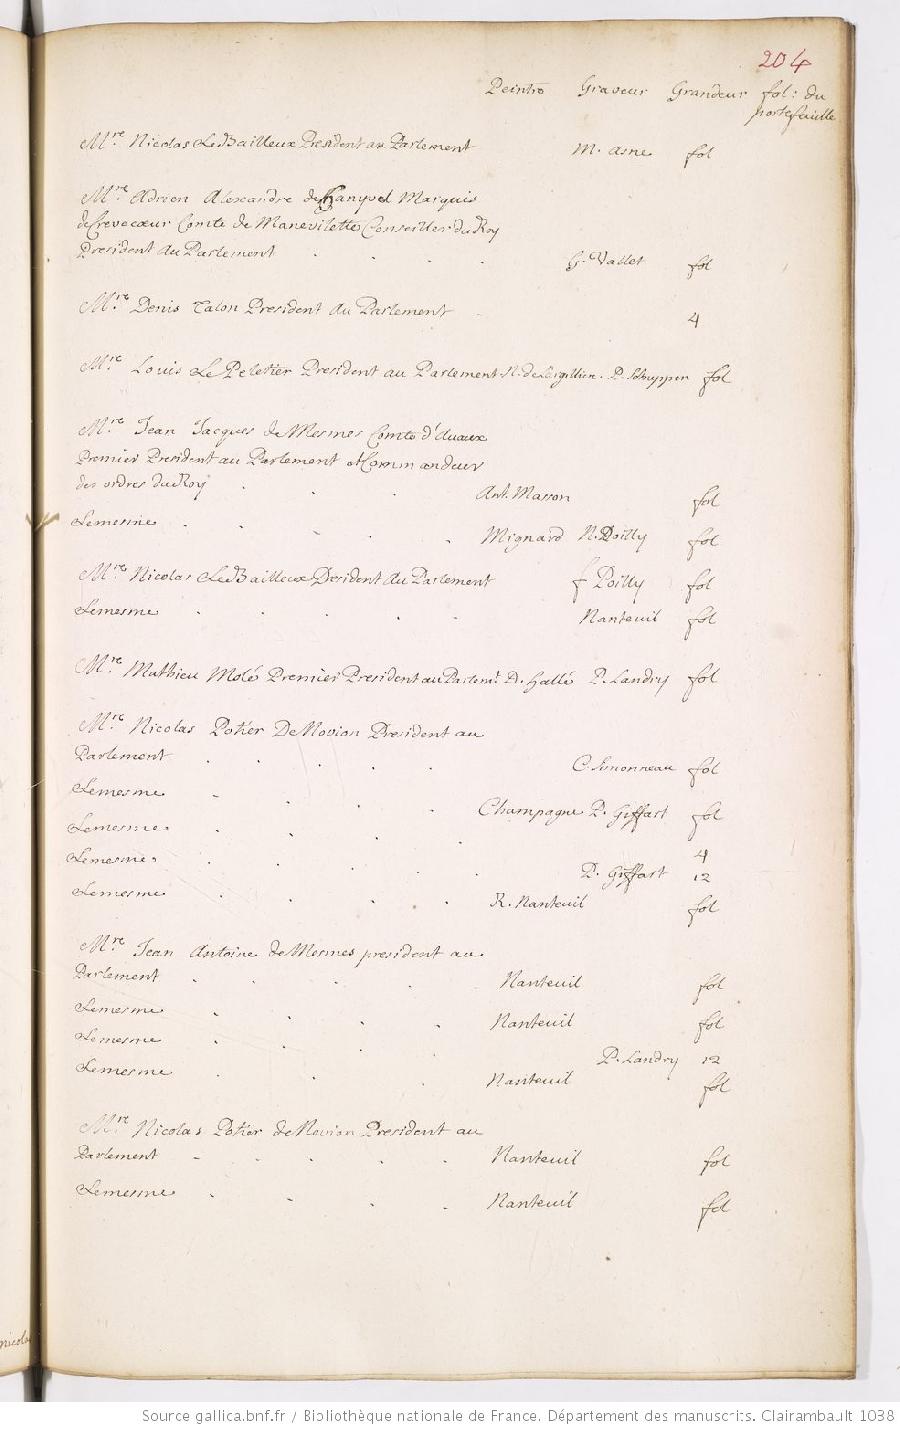 204
Peintre Graveur Grandeur fol: du
portefeuille
Mre. Nicolas Le Bailleux President au Parlement M. asne fol
Mre. Adrien Alexandre de hanyvel Marquis
de Crevecœur Comte de Manevilette Conseiller du Roy
President au Parlement G. Vallet fol
Mre. Denis Talon President au Parlement 4
Mre. Louis Le Peletier President au Parlement N. de Largillien. P. Schupper fol
Mre. Jean Jacques de Mesmes Comte d'Avaux
Premier President au Parlement et Commandeur
des ordres du Roy Ant. Masson fol
Lemesme Mignard N. Poilly fol
Mre. Nicolas Le Bailleux President au Parlement f Poilly fol
Lemesme Nanteuil fol
Mre. Mathieu Molé Premier President au Parlemt. D. hallé P. Landry fol
Mre. Nicolas Potier De Novion President au
Parlement C. Simonneau fol
Lemesme Champagne P. Giffart fol
Lemesme 4
Lemesme P. Giffart 12
Lemesme R. Nanteuil fol
Mre. Jean Antoine de Mesmes president au
Parlement Nanteuil fol
Lemesme Nanteuil fol
Lemesme P. Landry 12
Lemesme Nanteuil fol
Mre. Nicolas Potier de Novion President au
Parlement Nanteuil fol
Lemesme Nanteuil fol
Source gallica.bnf.fr / Bibliothèque nationale de France. Département des manuscrits. Clairambault 1038